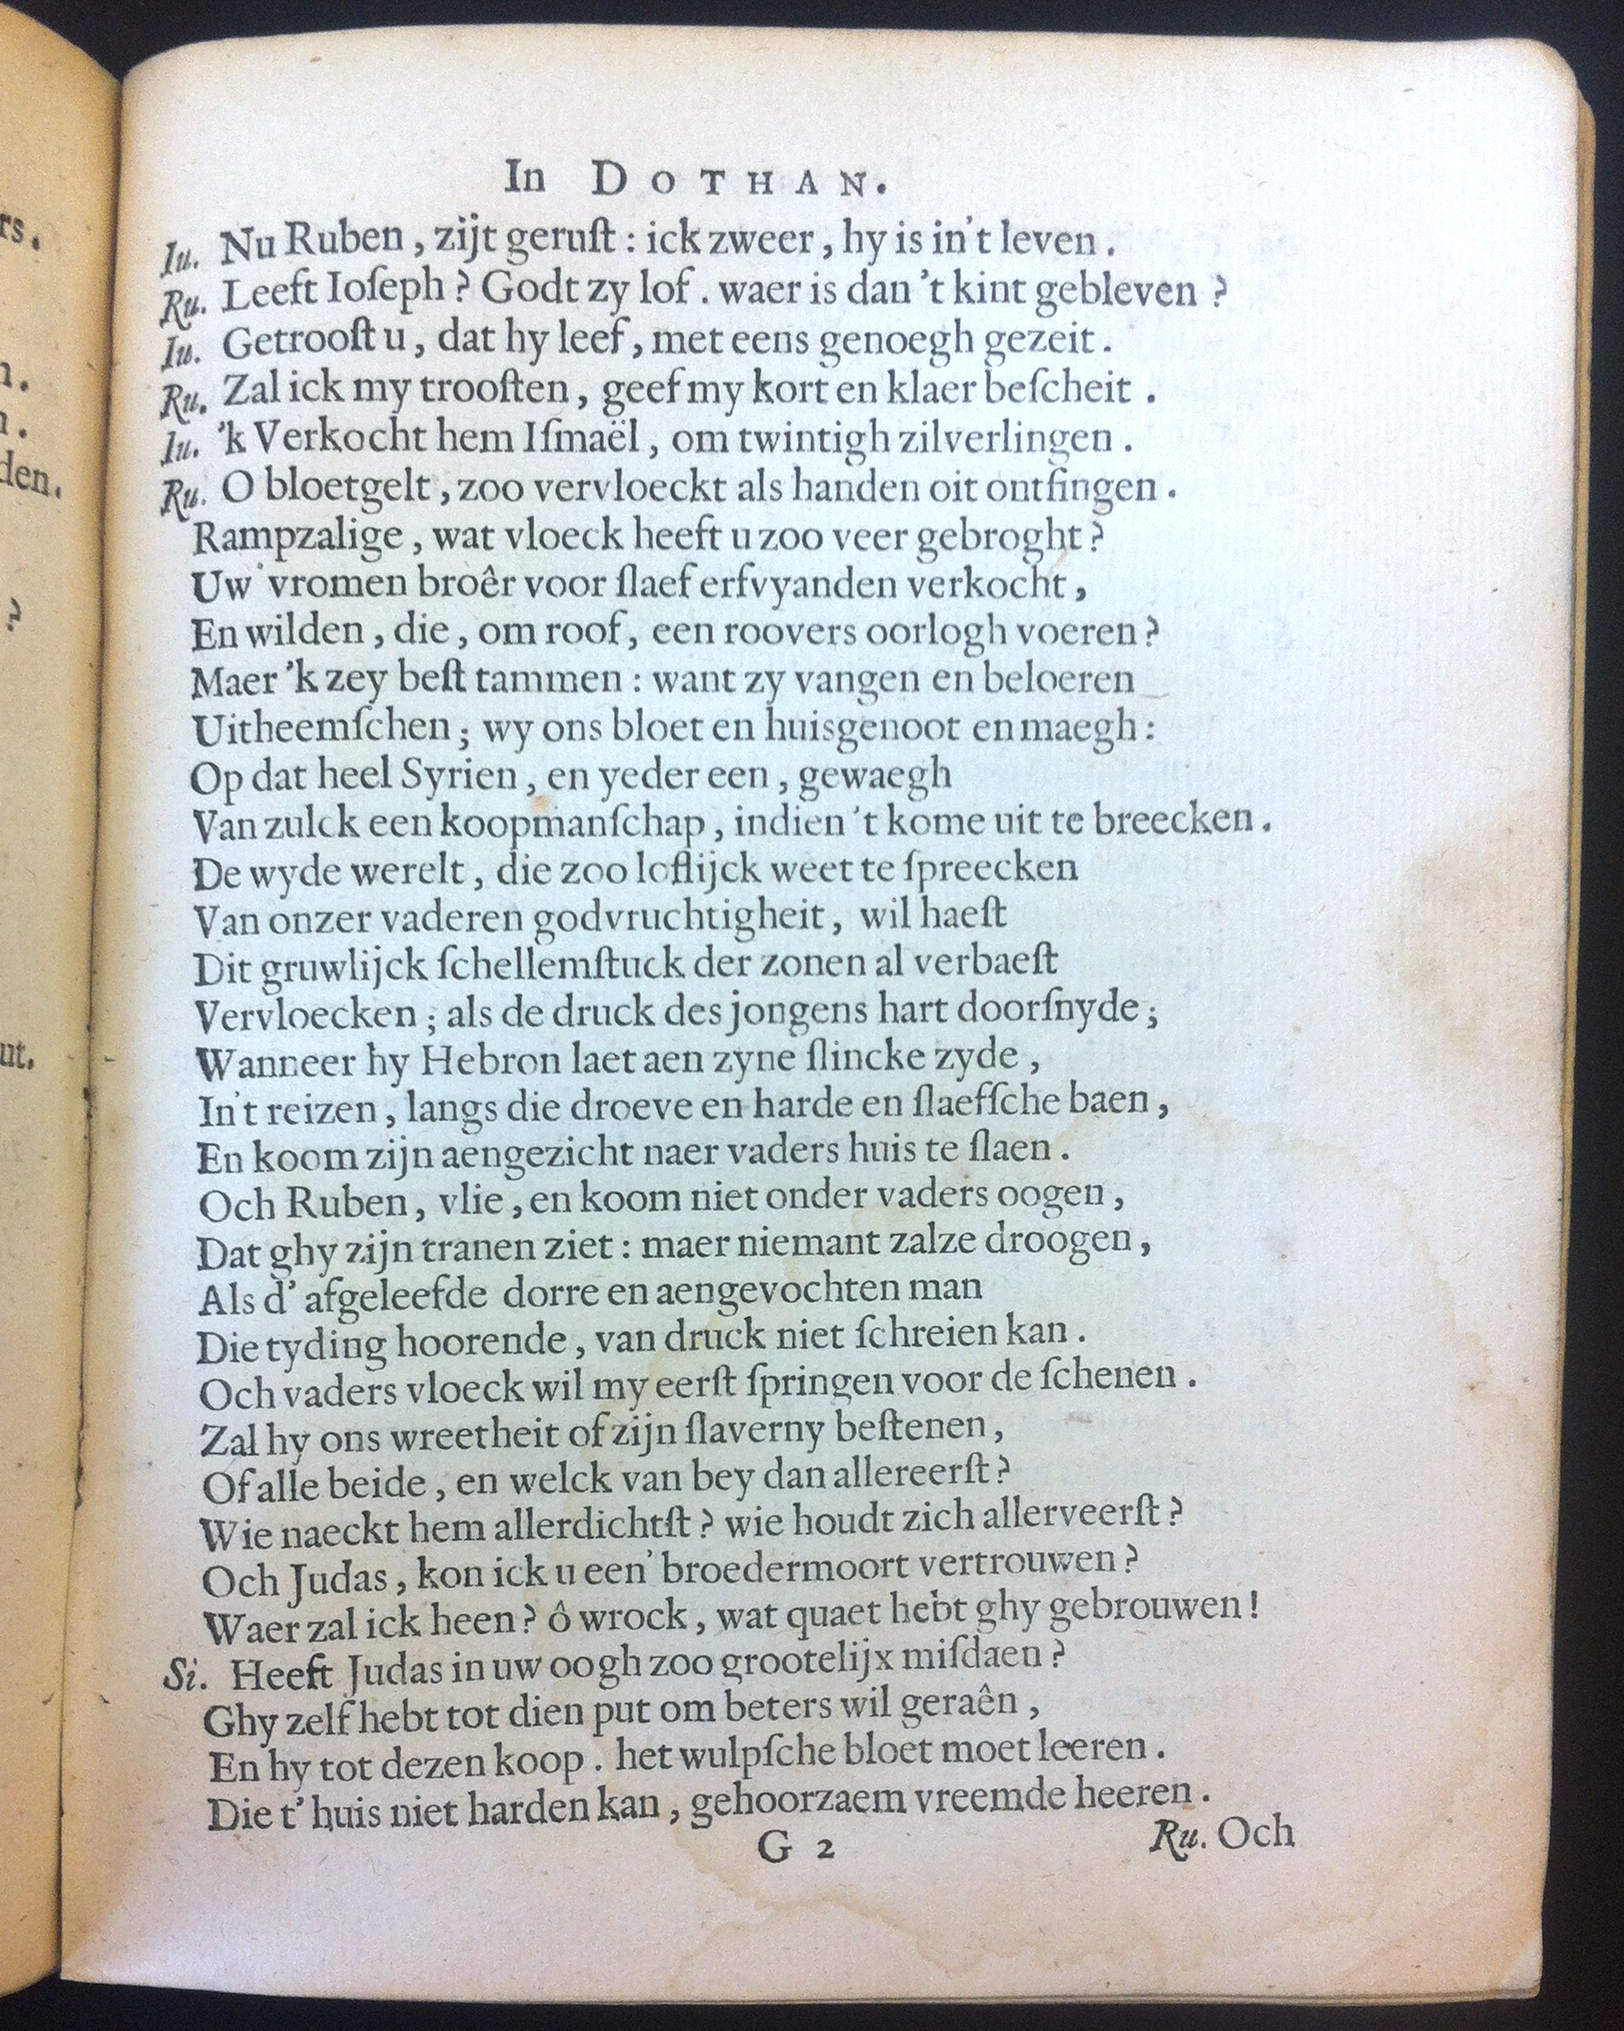 In DOTHAN.
Iu. Nu Ruben, zijt geruſt: ick zweer, hy is in't leven.
Ru. Leeft Ioſeph? Godt zy lof. waer is dan 't kint gebleven?
Iu. Getrooſt u, dat hy leef, met eens genoegh gezeit.
Ru. Zal ick my trooſten, geef my kort en klaer beſcheit.
Iu. 'k Verkocht hem Iſmaël, om twintigh zilverlingen.
Ru. O bloetgelt, zoo vervloeckt als handen oit ontfingen.
Rampzalige, wat vloeck heeft u zoo veer gebroght?
Uw' vromen broêr voor ſlaef erfvyanden verkocht,
En wilden, die, om roof, een roovers oorlogh voeren?
Maer 'k zey beſt tammen: want zy vangen en beloeren
Uitheemſchen; wy ons bloet en huisgenoot en maegh:
Op dat heel Syrien, en yeder een, gewaegh
Van zulck een koopmanſchap, indien 't kome uit te breecken.
De wyde werelt, die zoo loflijck weet te ſpreecken
Van onzer vaderen godvruchtigheit, wil haeſt
Dit gruwlijck ſchellemſtuck der zonen al verbaeſt
Vervloecken; als de druck des jongens hart doorſnyde;
Wanneer hy Hebron laet aen zyne ſlincke zyde,
In't reizen, langs die droeve en harde en ſlaefſche baen,
En koom zijn aengezicht naer vaders huis te ſlaen.
Och Ruben, vlie, en koom niet onder vaders oogen,
Dat ghy zijn tranen ziet: maer niemant zalze droogen,
Als d' afgeleefde dorre en aengevochten man
Die tyding hoorende, van druck niet ſchreien kan.
Och vaders vloeck wil my eerſt ſpringen voor de ſchenen.
Zal hy ons wreetheit of zijn ſlaverny beſtenen,
Of alle beide, en welck van bey dan allereerſt?
Wie naeckt hem allerdichtſt? wie houdt zich allerveerſt?
Och Judas, kon ick u een' broedermoort vertrouwen?
Waer zal ick heen? ô wrock, wat quaet hebt ghy gebrouwen!
Si. Heeft Judas in uw oogh zoo grootelijx miſdaen?
Ghy zelf hebt tot dien put om beters wil geraên,
En hy tot dezen koop. het wulpſche bloet moet leeren.
Die t' huis niet harden kan, gehoorzaem vreemde heeren.
G 2
Ru. Och
rs.
n.
n.
den.
?
ut.